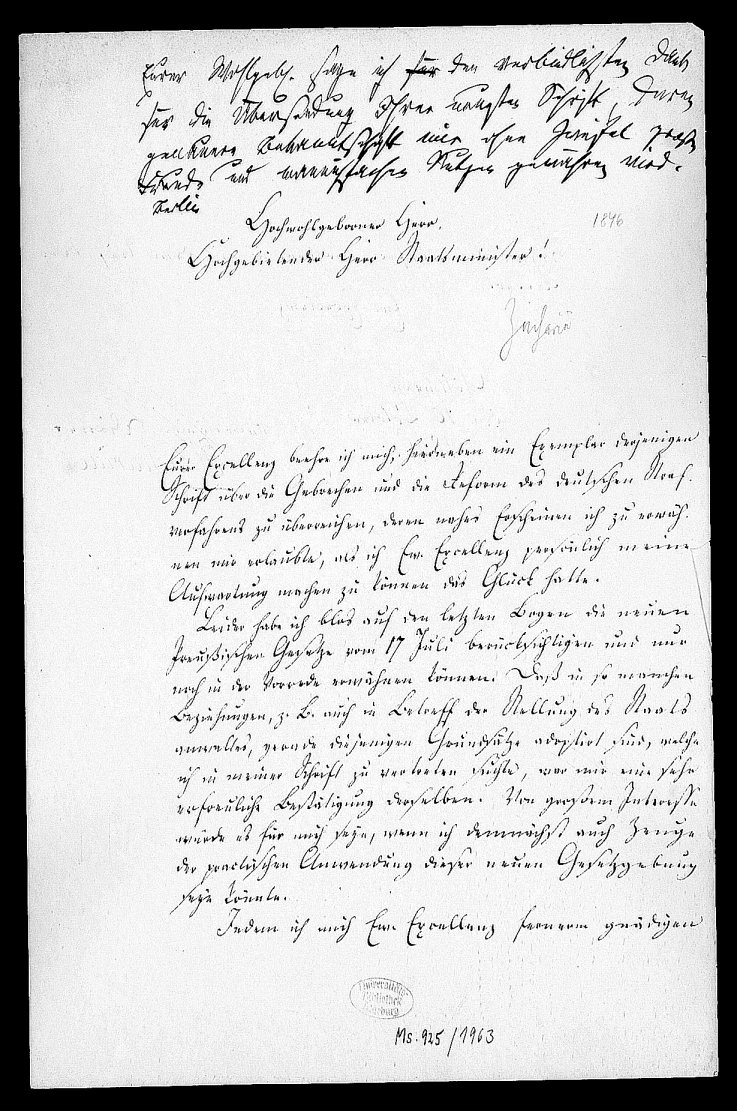 Eurer Wohlgeb. sage ich für den verbindlichsten Dank
für die Übersendung Ihrer neuesten Schrift, deren
genauere Bekanntschaft mir ohne Zweifel
und mannigfachen Nutzen gewähren wird.
Berlin
Hochwohlgeborner Herr,
1846
Hochgebietender Herr Staatsminister!
Zachariä
Eurer Excellenz beehre ich mich, hierneben ein Exemplar derjenigen
Schrift über die Gebrechen und die Reform des deutschen Straf-
verfahrens zu überreichen, deren nahes Erscheinen ich zu erwäh-
nen mir erlaubte, als ich Ew. Excellenz persönlich meine
Aufwartung machen zu können das Glück hatte.
Leider habe ich blos auf den letzten Bogen die neuen
Preußischen Gesetze vom 17 Juli berücksichtigen und nur
noch in der Vorrede erwähnen können. Daß in so manchen
Beziehungen, z. B. auch in Betreff der Stellung des Staats
anwaltes, gerade diejenigen Grundsätze adoptirt sind, welche
ich in meiner Schrift zu vertreten suchte, war mir eine sehr
erfreuliche Bestätigung derselben. Von großem Interesse
würde es für mich seyn, wenn ich demnächst auch Zeuge
der practischen Anwendung dieser neuen Gesetzgebung
seyn könnte.
Indem ich mich Ew. Excellenz fernerm gnädigen
Universitäts-
Bibliothek
Marburg
Ms. 925/1963